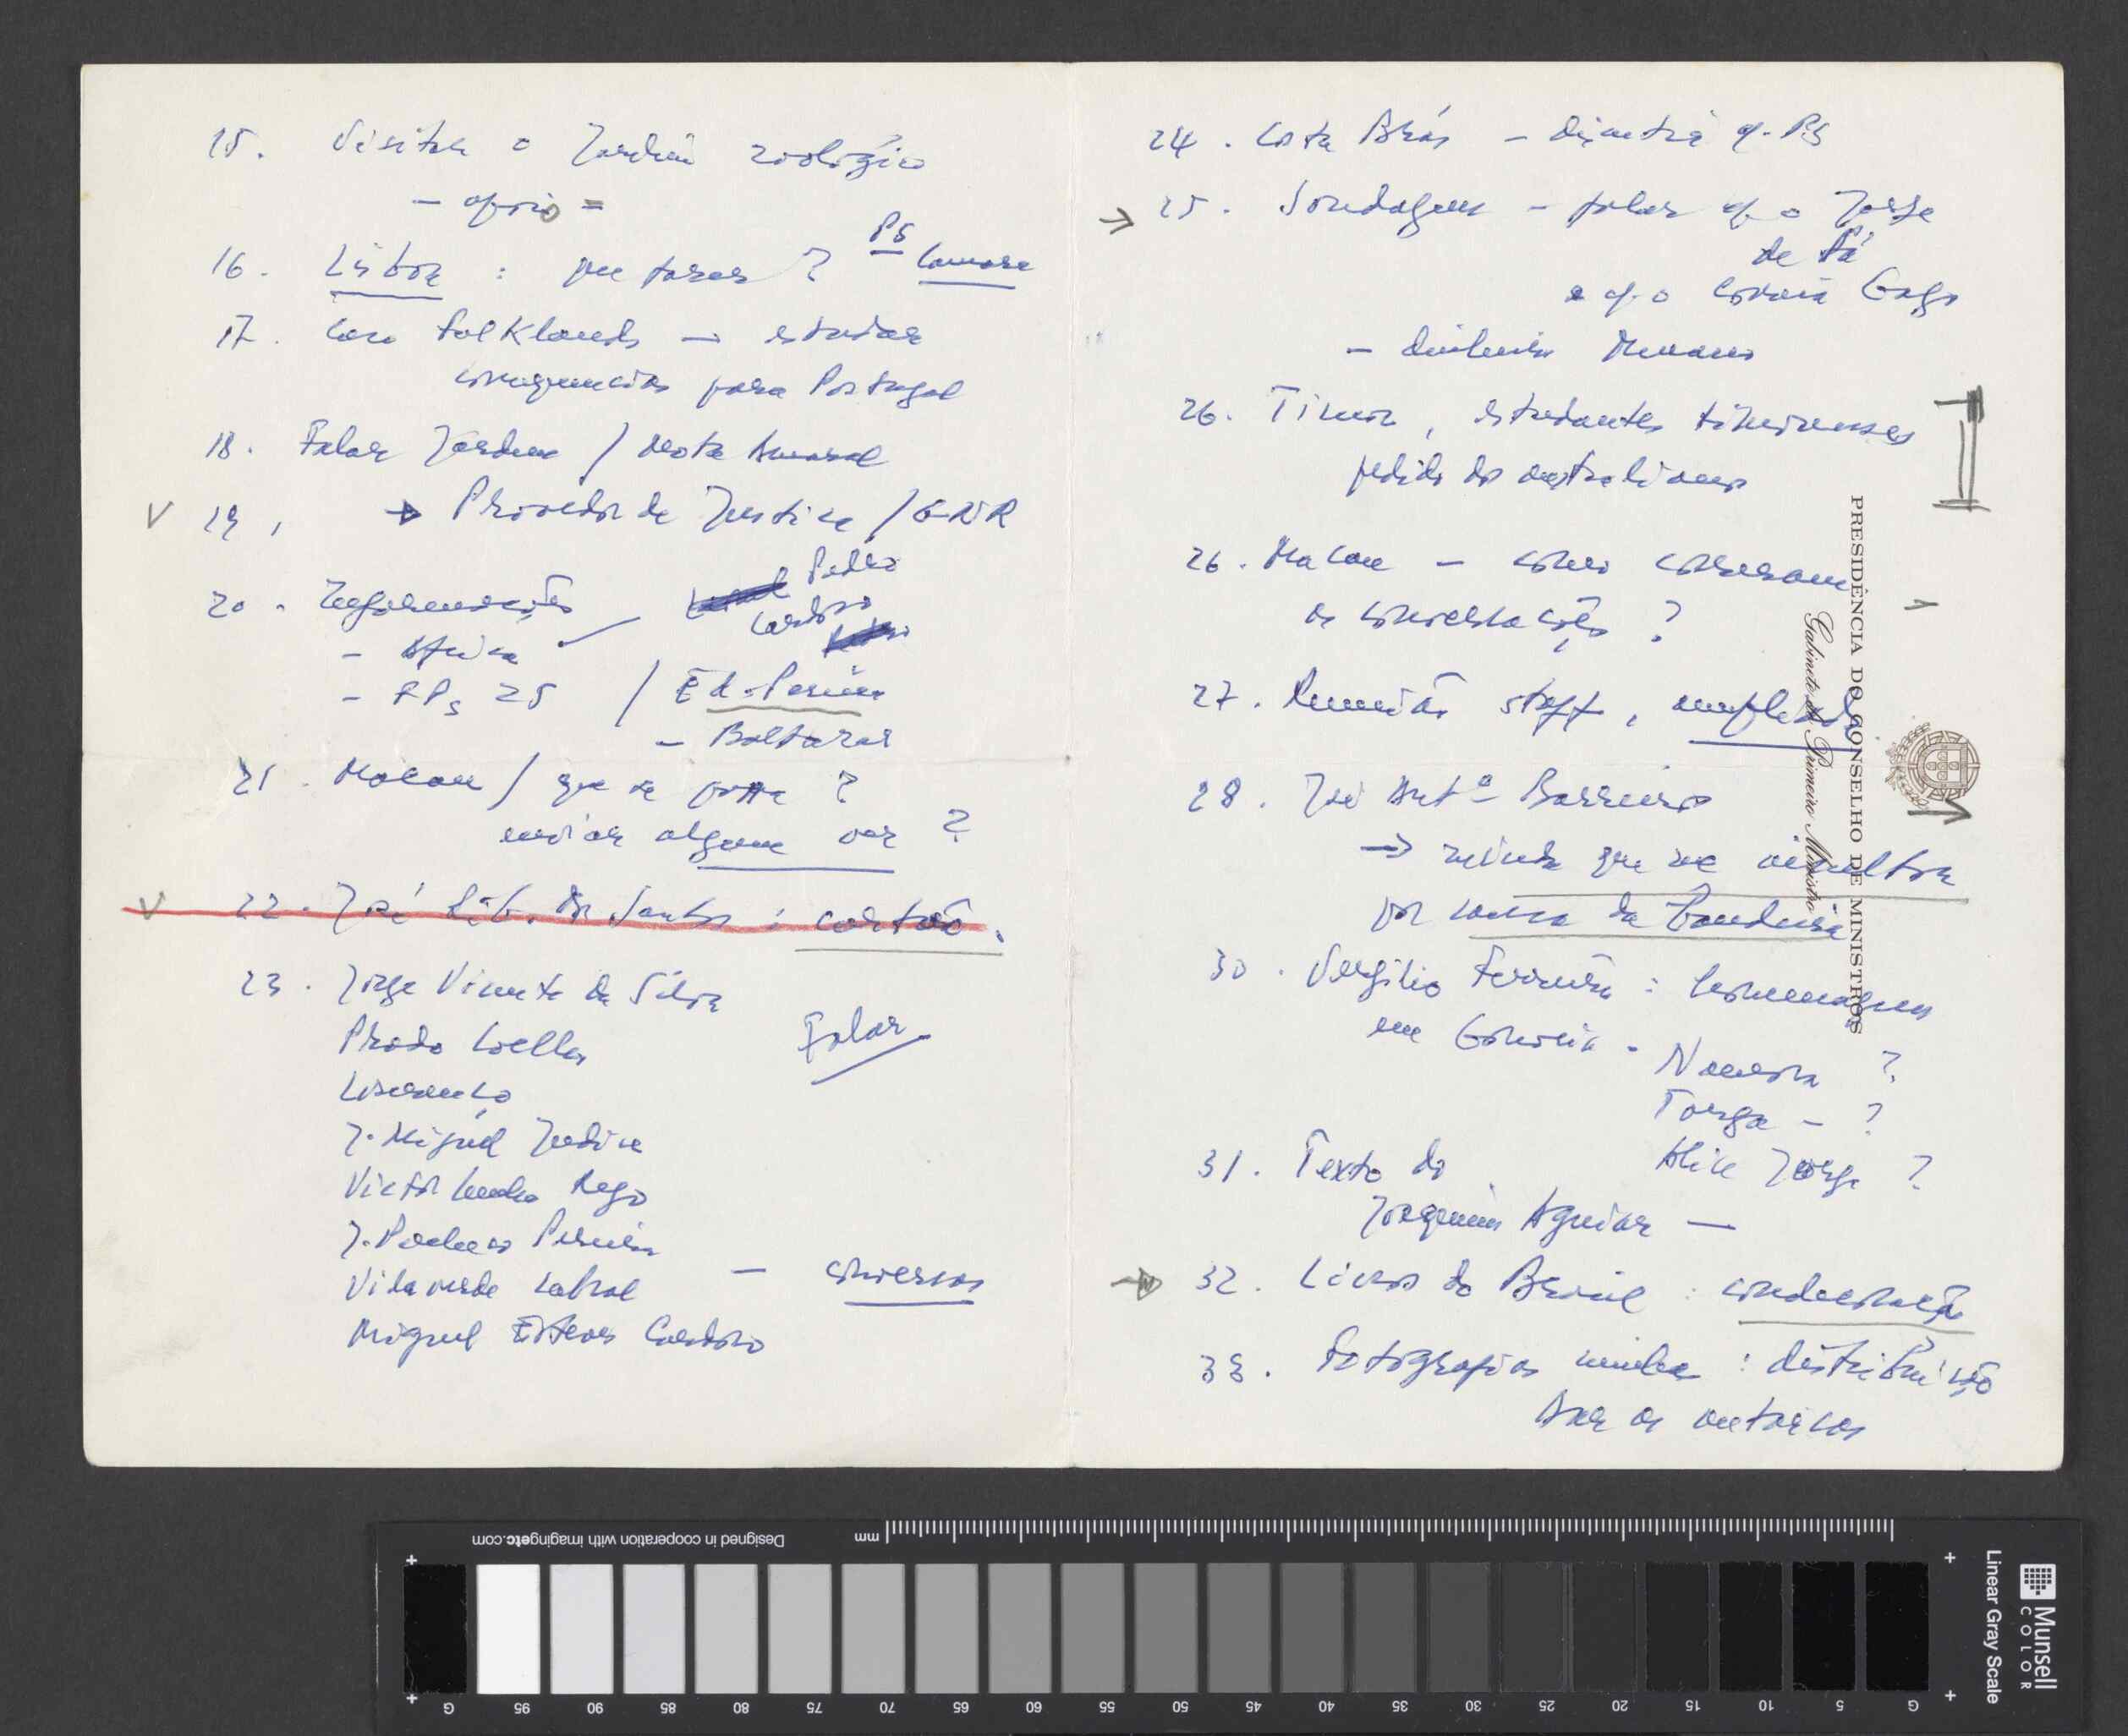 15. Visita o Jardim zoológico
- apoio =
16. Lisboa : que fazer ? PS Camara
17. Caso Falklands → estudar
consequencias para Portugal
18. Falar Jardim / Mota Amaral
V 19, → Provedor de Justiça / GNR
20. Informações Pedro
Cardoso
- Africa
- FPs 25 / Ed. Pereira
- Baltazar
21. Macau / que se passa ?
enviar alguem var ?
V 22. José Rib. dos Santos : cartão.
23. Jorge Vicente da Silva
Prado Coelho Falar
Lourenço
J. Miguel Judice
Victor Cunha Rego
J. Pacheco Pereira
Villaverde Cabral - conversas
Miguel Esteves Cardoso
24. Costa Brás - Directia c/. PS
→ 25. Sondagens - falar c/. o Jorge
de Sá
e c/. o Correia Gago
- 
26. Timor, estudantes timorenses
pedido dos australianos
26. Macau - como correram
as conversações ?
27. Reunião staff, ampliada
28. José Antº Barreiros
→ minha que me
por causa da
30. Vergilio Ferreira : homenagem
em Gouveia. Namora ?
Torga - ?
Alice Jorge ?
31. Texto do
Joaquim Aguiar —
→ 32. Livros do Brasil : condecoração
33. Fotografias minhas : distribuição
PRESIDÊNCIA DO CONSELHO DE MINISTROS
Gabinete do Primeiro Ministro
Designed in cooperation with imagingetc.com
mm
G 95 90 85 80 75 70 65 60 55 50 45 40 35 30 25 20 15 10 5 G
Linear Gray Scale
Munsell
COLOR